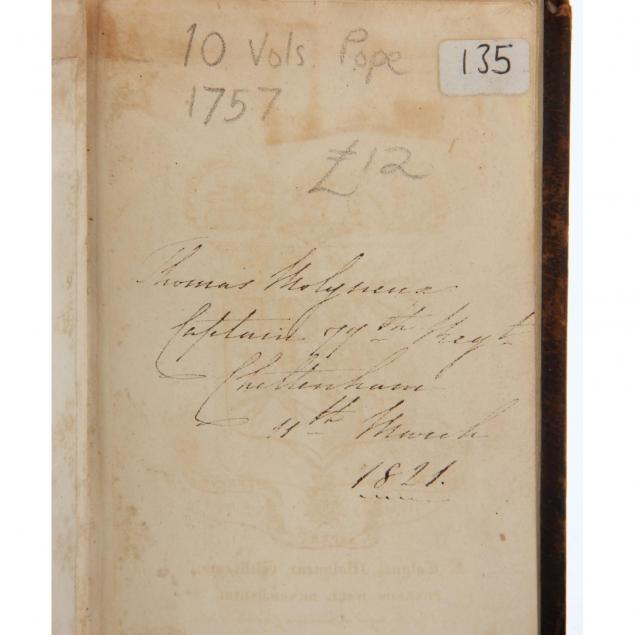 10 Vols. Pope
135
1757
£12
Thomas Molyneux
Captain 77th Regt
Cheltenham
4th March
1821.